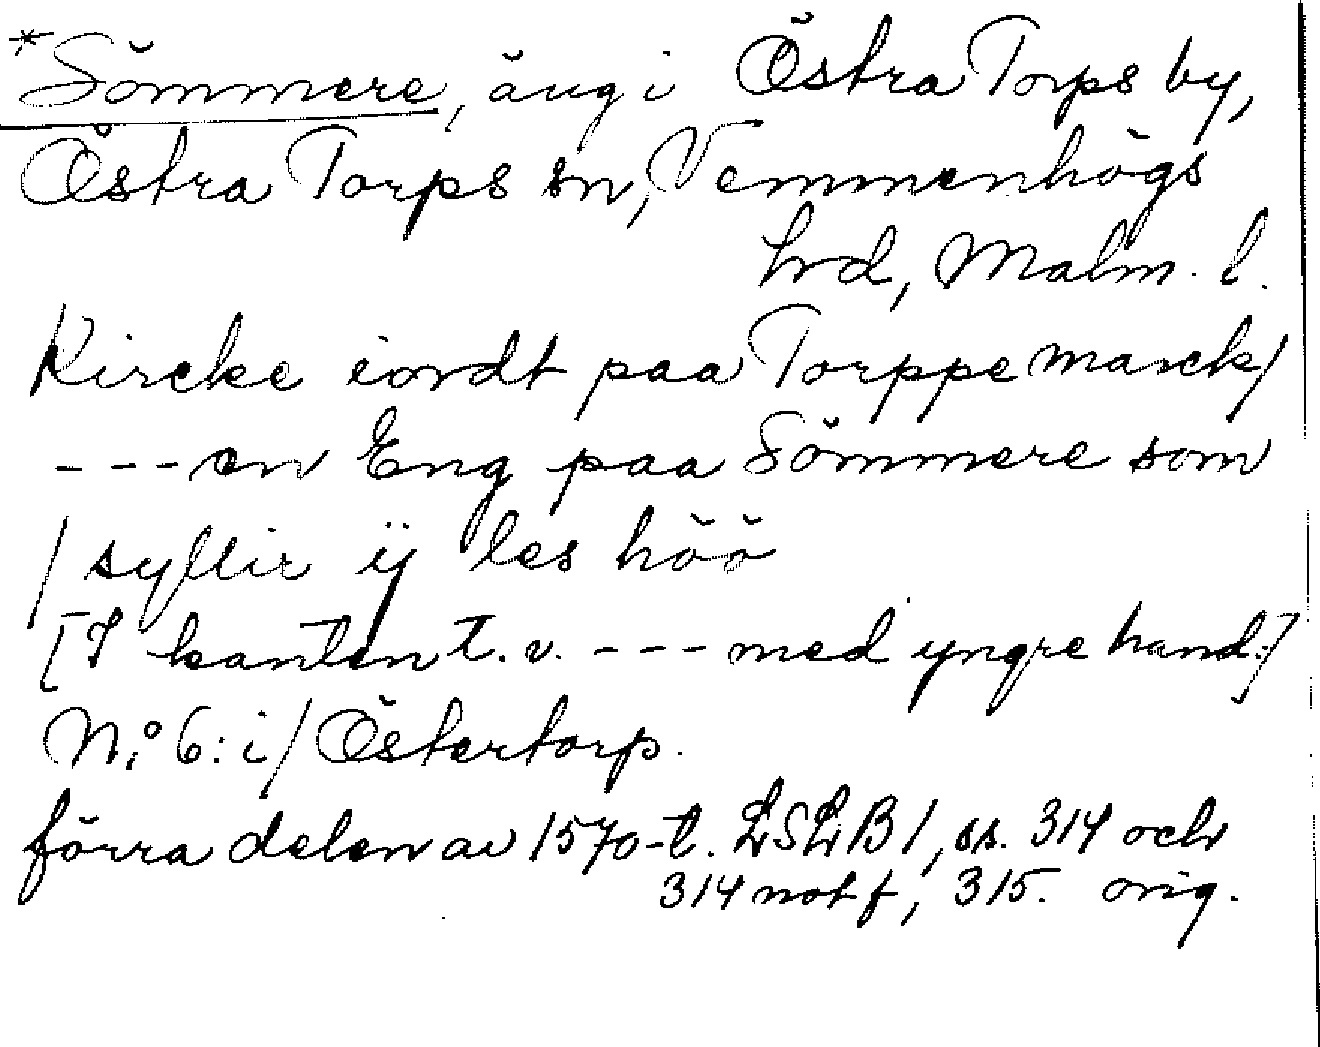 *Sömmere, äng i Östra Torps by,
Östra Torps sn, Vemmenhögs
hrd, Malm. l.
Kircke iordt paa Torppe marck/
---en Eng paa Sömmere som
/ syllir ij les höö
[I kanten t. v. --- med yngre hand:]
N:o 6: i/ Östertorp.
förra delen av 1570-t. LSLB 1, ss. 314 och
314 not f, 315. orig.